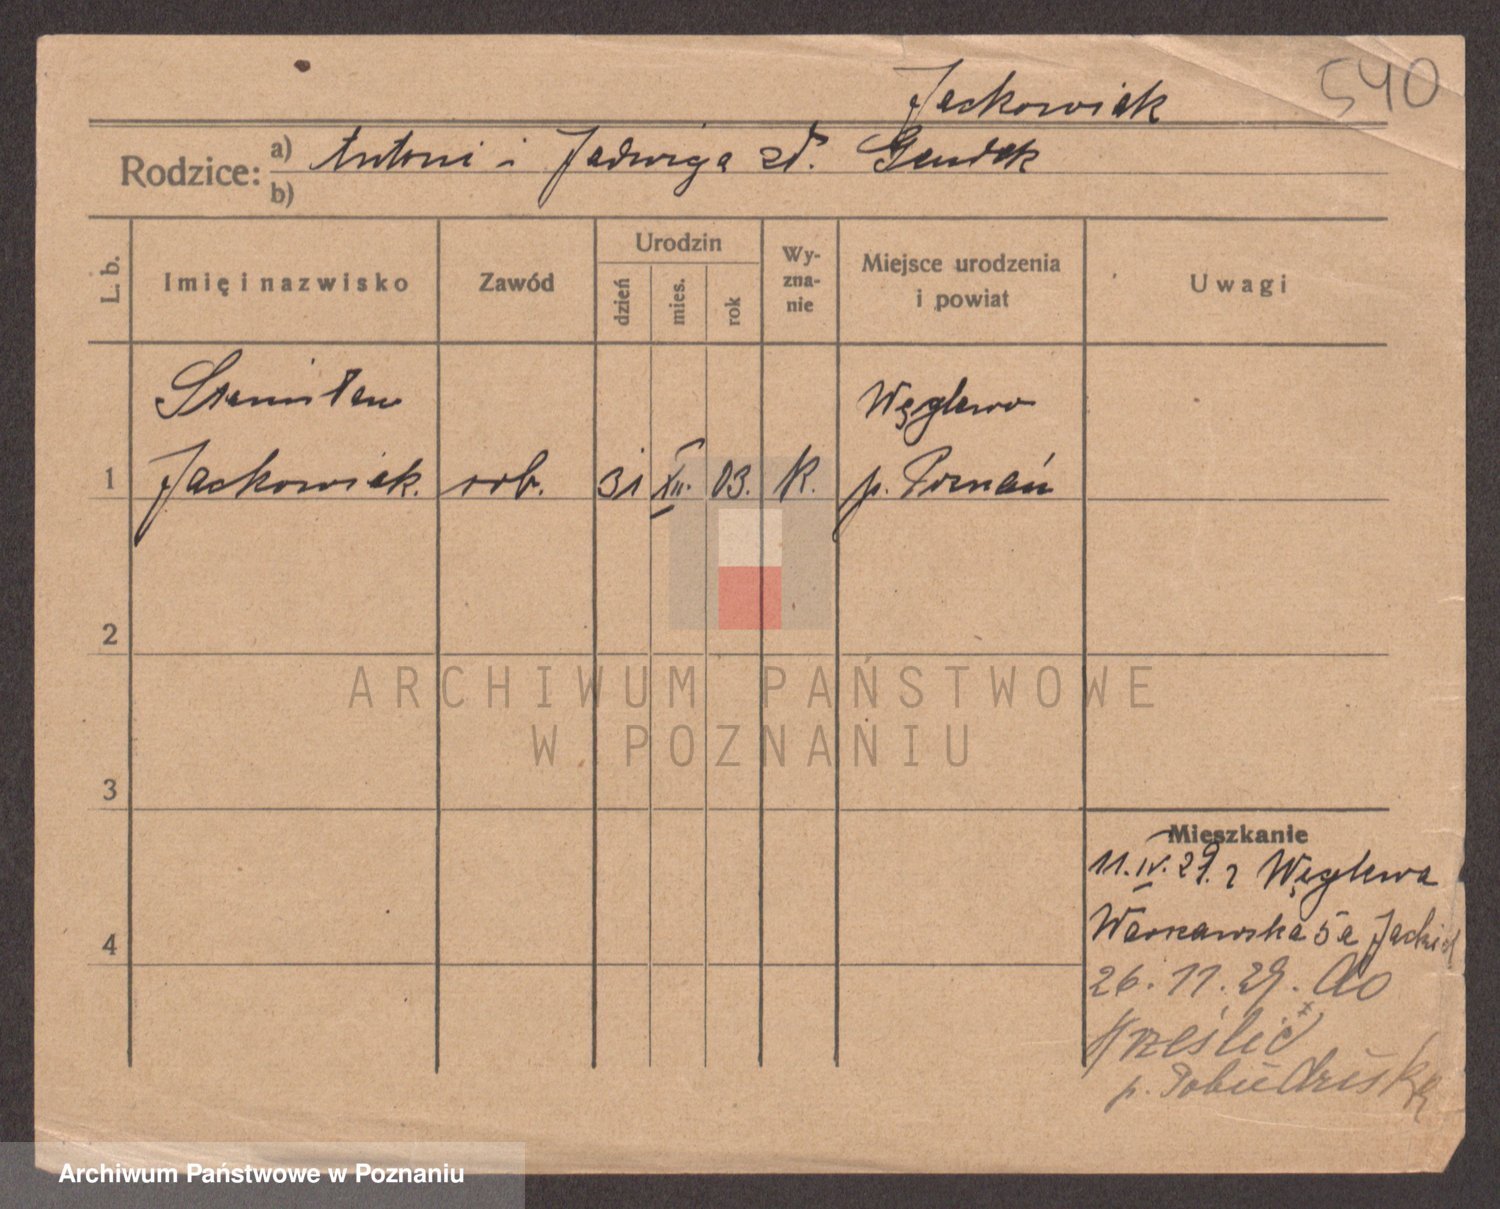 540
Jackowiak
Rodzice: a) Antoni i Jadwiga zd.
b)
L. b.
Imię i nazwisko
Zawód
Urodzin
dzień
mies.
rok
Wy-
zna-
nie
Miejsce urodzenia
i powiat
Uwagi
Stanisław
Węglewo
1 Jackowiak. rob. 31 XII. 03. K. p. Poznań
2
ARCHIWUM PAŃSTWOWE
W POZNANIU
3
Mieszkanie
11.IV.29. z Węglewa
Warszawska 5a
4
26.11.29. do
p.
Archiwum Państwowe w Poznaniu